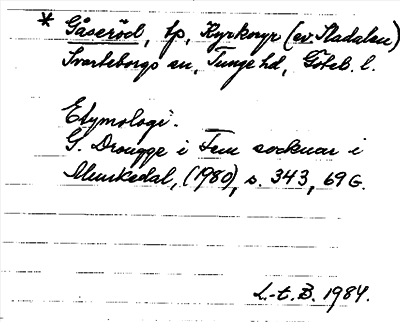 * Gåseröd, tp, Kyrkoryr (ev. Stadalen)
Svarteborgs sn, Tunge hd, Göteb. l.
Etymologi.
G. Drougge i Fem socknar i
Munkedal, (1980), s. 343, 69 G.
L-t. B. 1984.